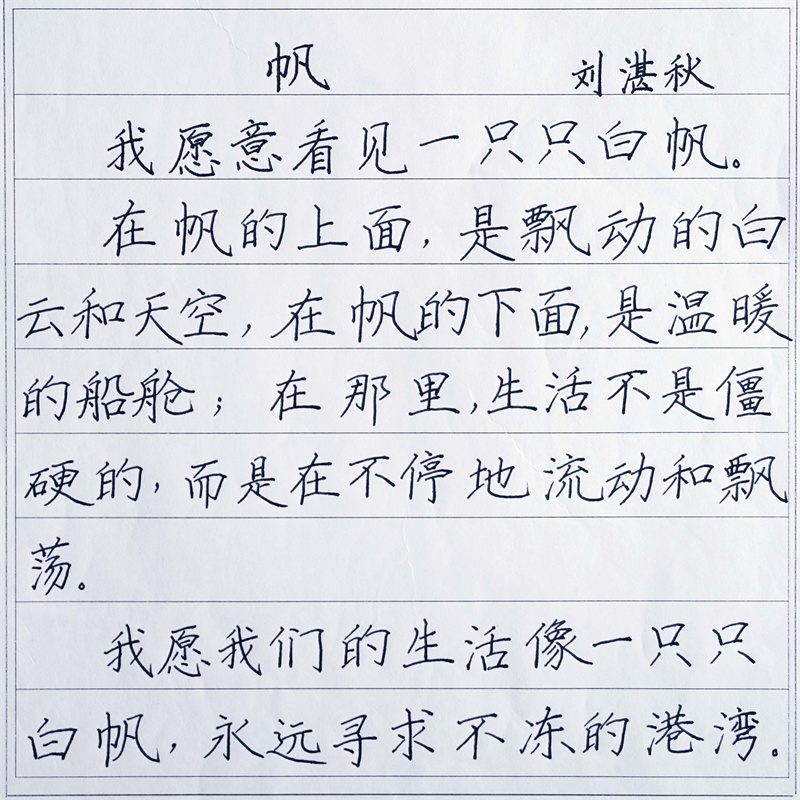 帆 刘湛秋
我愿意看见一只只白帆。
在帆的上面,是飘动的白
云和天空,在帆的下面,是温暖
的船舱;在那里,生活不是僵
硬的,而是在不停地流动和飘
荡。
我愿我们的生活像一只只
白帆,永远寻求不冻的港湾。